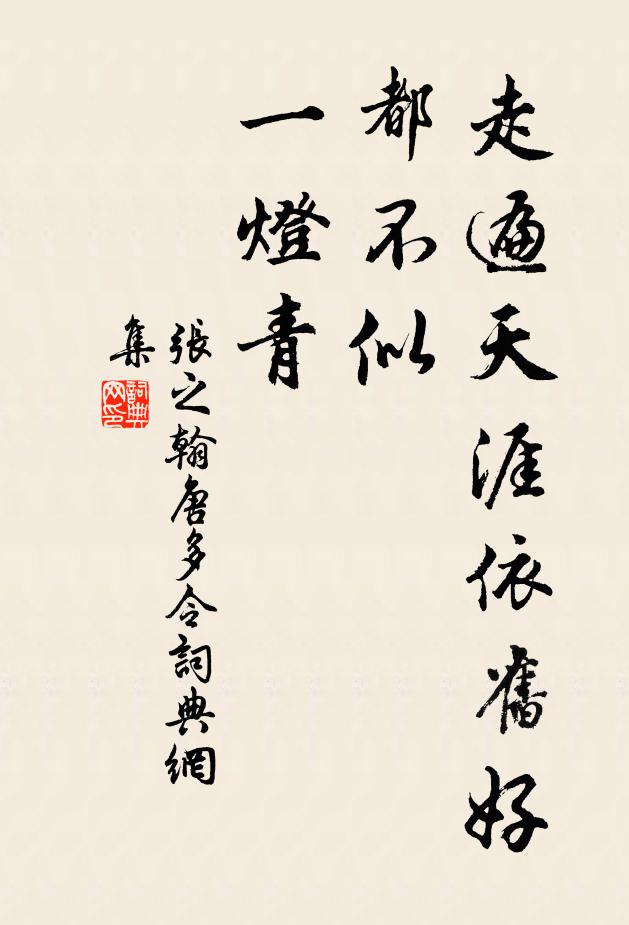 走遍天涯依舊好
都不似
一燈青
張之翰唐多令詞典網
集
詞典
网印